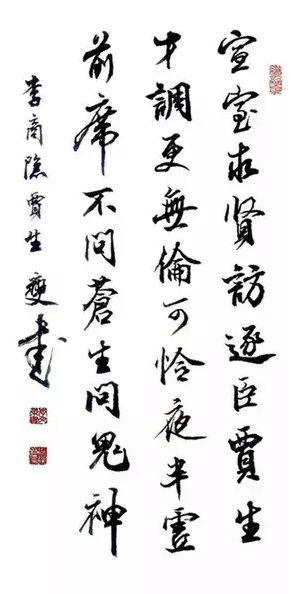 宣室求賢訪逐臣賈生
才調更無倫可怜夜半虛
前席不問蒼生問鬼神
李商隱賈生 書